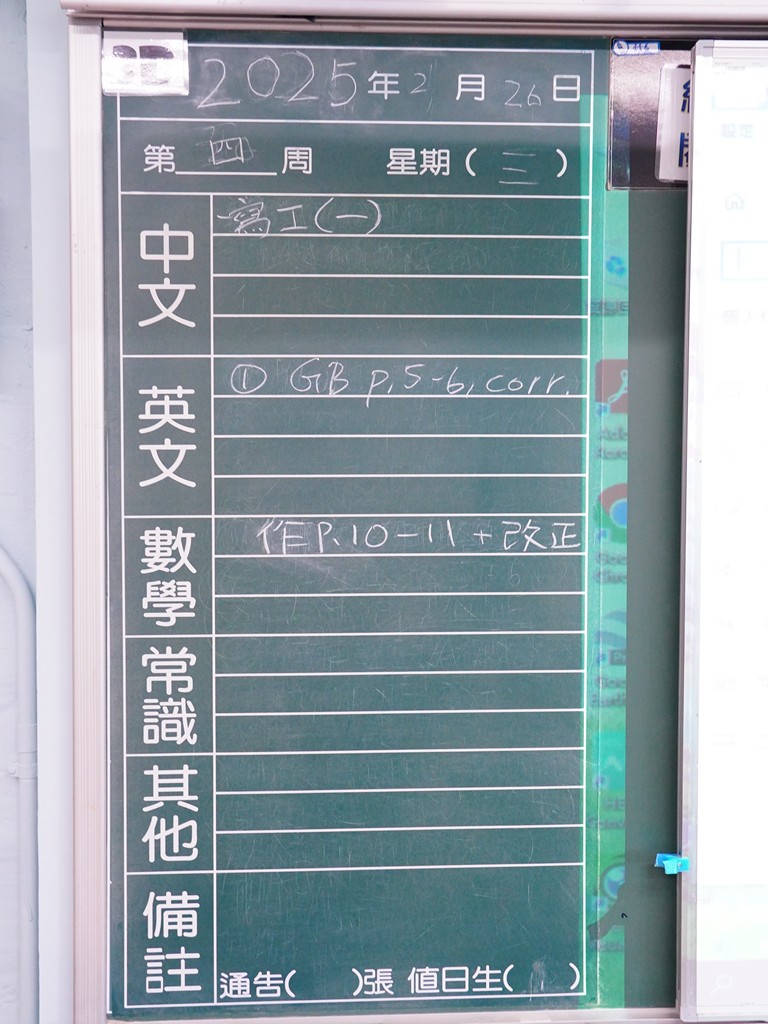 2025年2月26日
第四周 星期(三)
中文
寫工(一)
英文
① GB p.5-6, corr.
數學
作P.10-11+改正
常識
其他
備註
通告( )張 值日生( )
設定